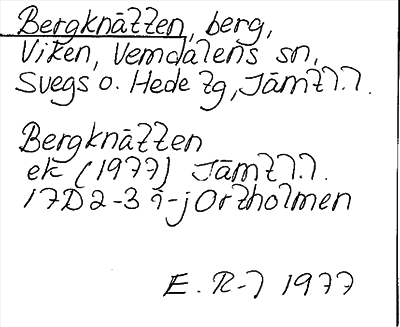 Bergknätten, berg,
Viken, Vemdalens sn,
Svegs o. Hede tg, Jämtl.l.
Bergknätten
ek (1977) Jämtl.l.
17D2-3 i-j Ortholmen
E. R-J 1977